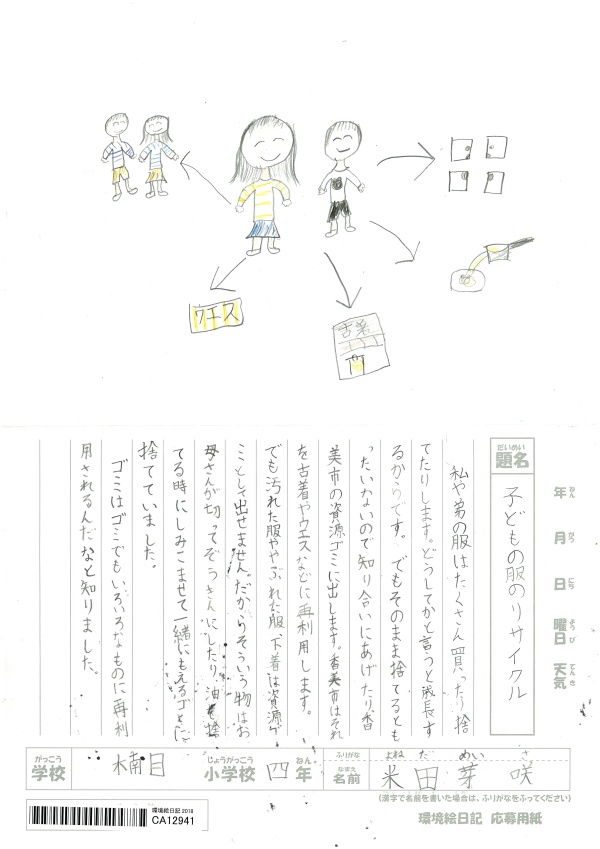 ウエス
古着
年 ねん
月 がつ
日 にち
曜日 ようび
天気 てんき
題名 だいめい
子どもの服のリサイクル
私や弟の服はたくさん買ったり捨
てたりします。どうしてかと言うと成長す
るからです。でもそのまま捨てるとも
ったいないので知り合いにあげたり香
美市の資源ゴミに出します。香美市はそれ
を古着やウエスなどに再利用します。
でも汚れた服ややぶれた服、下着は資源ゴ
ミとして出せません。だからそういう物はお
母さんが切ってぞうきんにしたり油を捨
てる時にしみこませて一緒にもえるゴミに
捨てていました。
ゴミはゴミでもいろいろなものに再利
用されるんだなと知りました。
学校 がっこう 楠目 小学校 しょうがっこう 四 年 ねん ふりがな 名前 なまえ 米田 芽咲 よねだ めいさ
(漢字で名前を書いた場合は、ふりがなをふってください)
環境絵日記 応募用紙
環境絵日記 2018
CA12941